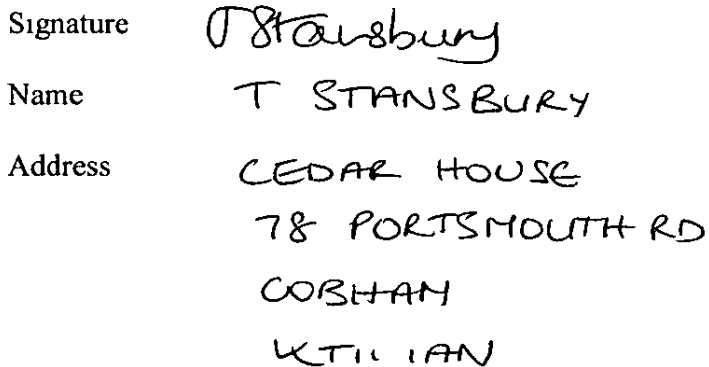 Signature TStansbury
Name T STANSBURY
Address CEDAR HOUSE
78 PORTSMOUTH RD
COBHAM
KT11 1AN